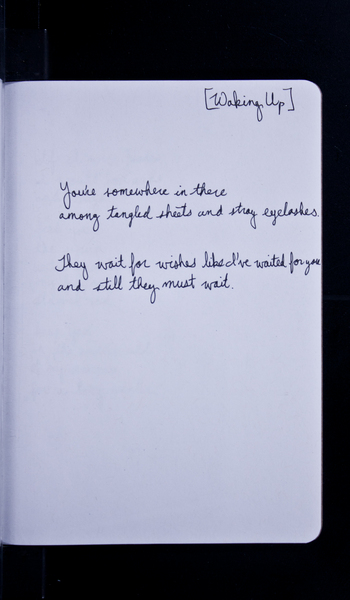 [Waking Up]
You're somewhere in there
among tangled sheets and stray eyelashes.
They wait for wishes like I've waited for you
and still they must wait.